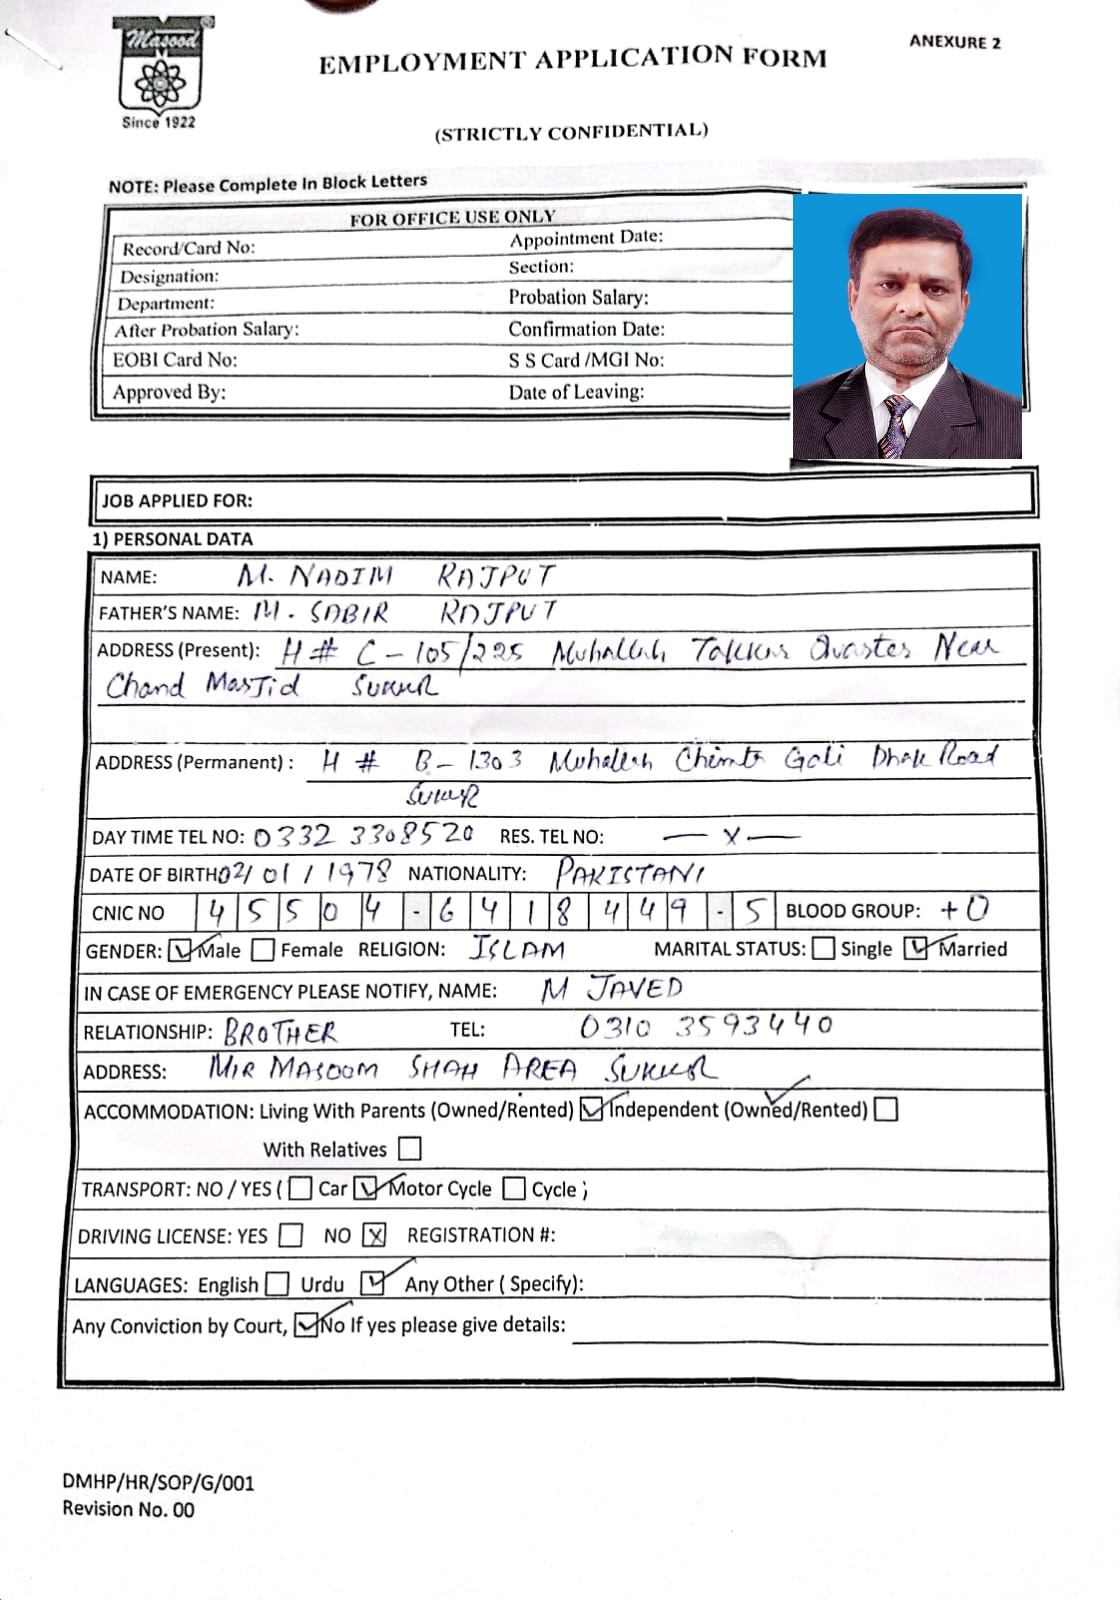 Masood
Since 1922
EMPLOYMENT APPLICATION FORM
ANEXURE 2
(STRICTLY CONFIDENTIAL)
NOTE: Please Complete In Block Letters
FOR OFFICE USE ONLY
Record/Card No: Appointment Date:
Designation: Section:
Department: Probation Salary:
After Probation Salary: Confirmation Date:
EOBI Card No: S S Card /MGI No:
Approved By: Date of Leaving:
JOB APPLIED FOR:
1) PERSONAL DATA
NAME: M. NADIM RAJPUT
FATHER'S NAME: M. SABIR RAJPUT
ADDRESS (Present): H# C-105/225 Muhallah Quarter Near
Chand Masjid Sukkur
ADDRESS (Permanent) : H # B-1303 Gali Road
Sukkur
DAY TIME TEL NO: 0332 3308520 RES. TEL NO: — x —
DATE OF BIRTH 02/ 01 / 1978 NATIONALITY: PAKISTANI
CNIC NO 45504-6418449-5 BLOOD GROUP: +O
GENDER: Male Female RELIGION: ISLAM MARITAL STATUS: Single Married
IN CASE OF EMERGENCY PLEASE NOTIFY, NAME: M JAVED
RELATIONSHIP: BROTHER TEL: 0310 3593440
ADDRESS: MIR MASOOM SHAH AREA SUKKUR
ACCOMMODATION: Living With Parents (Owned/Rented) Independent (Owned/Rented)
With Relatives
TRANSPORT: NO / YES ( Car Motor Cycle Cycle )
DRIVING LICENSE: YES NO X REGISTRATION #:
LANGUAGES: English Urdu Any Other ( Specify):
Any Conviction by Court, No If yes please give details:
DMHP/HR/SOP/G/001
Revision No. 00